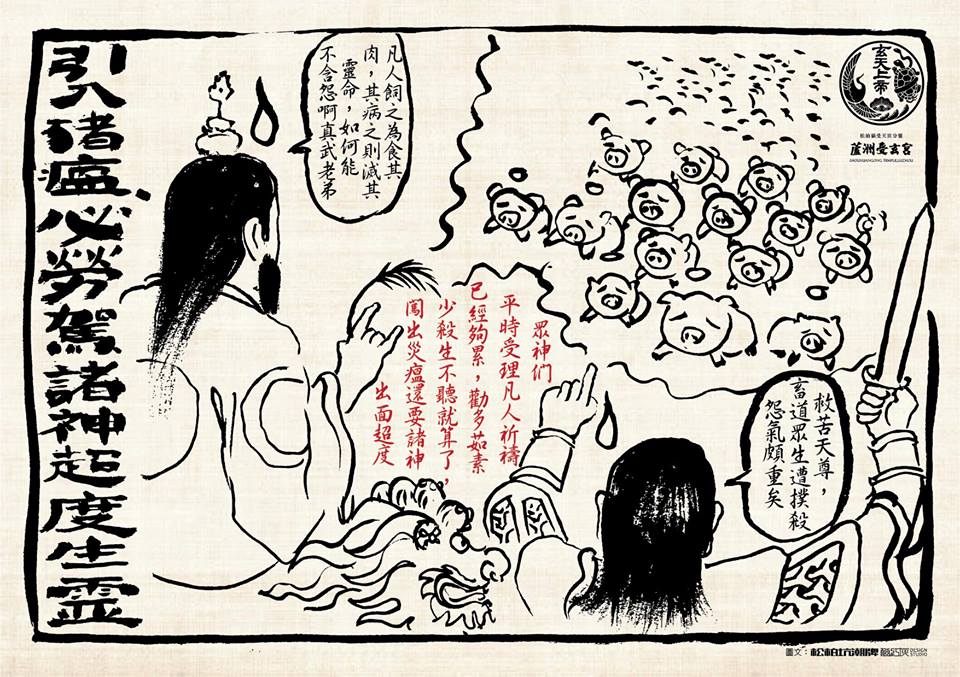 引入豬瘟必勞駕諸神超度生霊
凡人飼之為食其
肉，其病之則滅其
靈命，如何能
不含怨啊真武老弟
眾神們
平時受理凡人祈禱
已經夠累，勸多茹素
少殺生不聽就算了，
闖出災瘟還要諸神
出面超度
救苦天尊，
畜道眾生遭撲殺
怨氣頗重矣
玄天上帝
松柏嶺受天宮分靈
蘆洲受玄宮
圖文：松柏坑潮牌
DESIGN
STUDIO